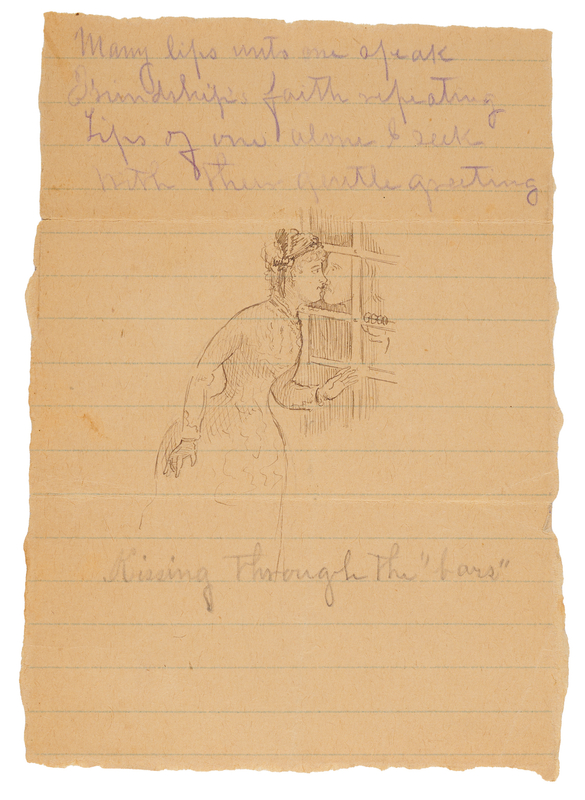 Many lips unto one speak
Friendship's faith repeating
Lips of one alone I seek
With their gentle greeting
Kissing through the "bars"